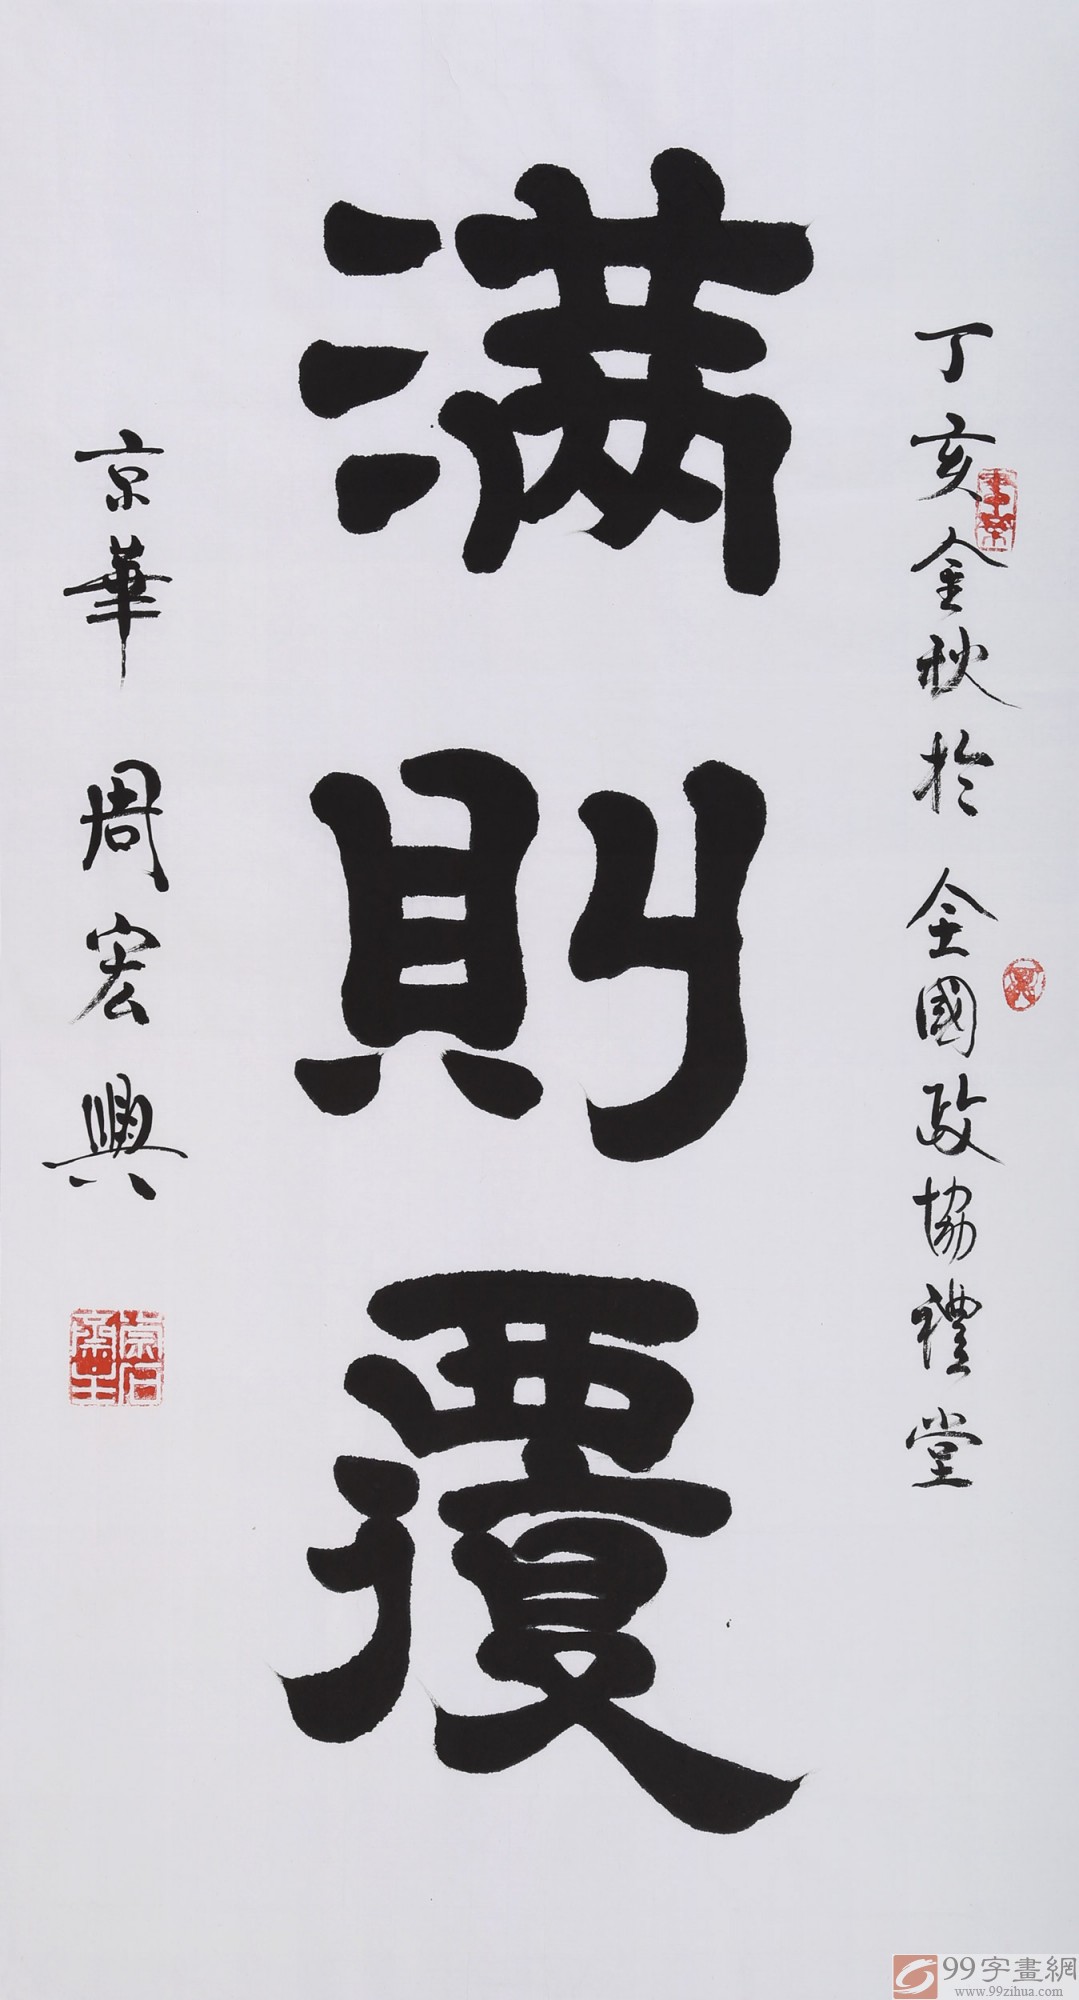 丁亥金秋於全國政協禮堂
满則覆
京華 周宏興
崇石齋主
99字畫網
www.99zihua.com